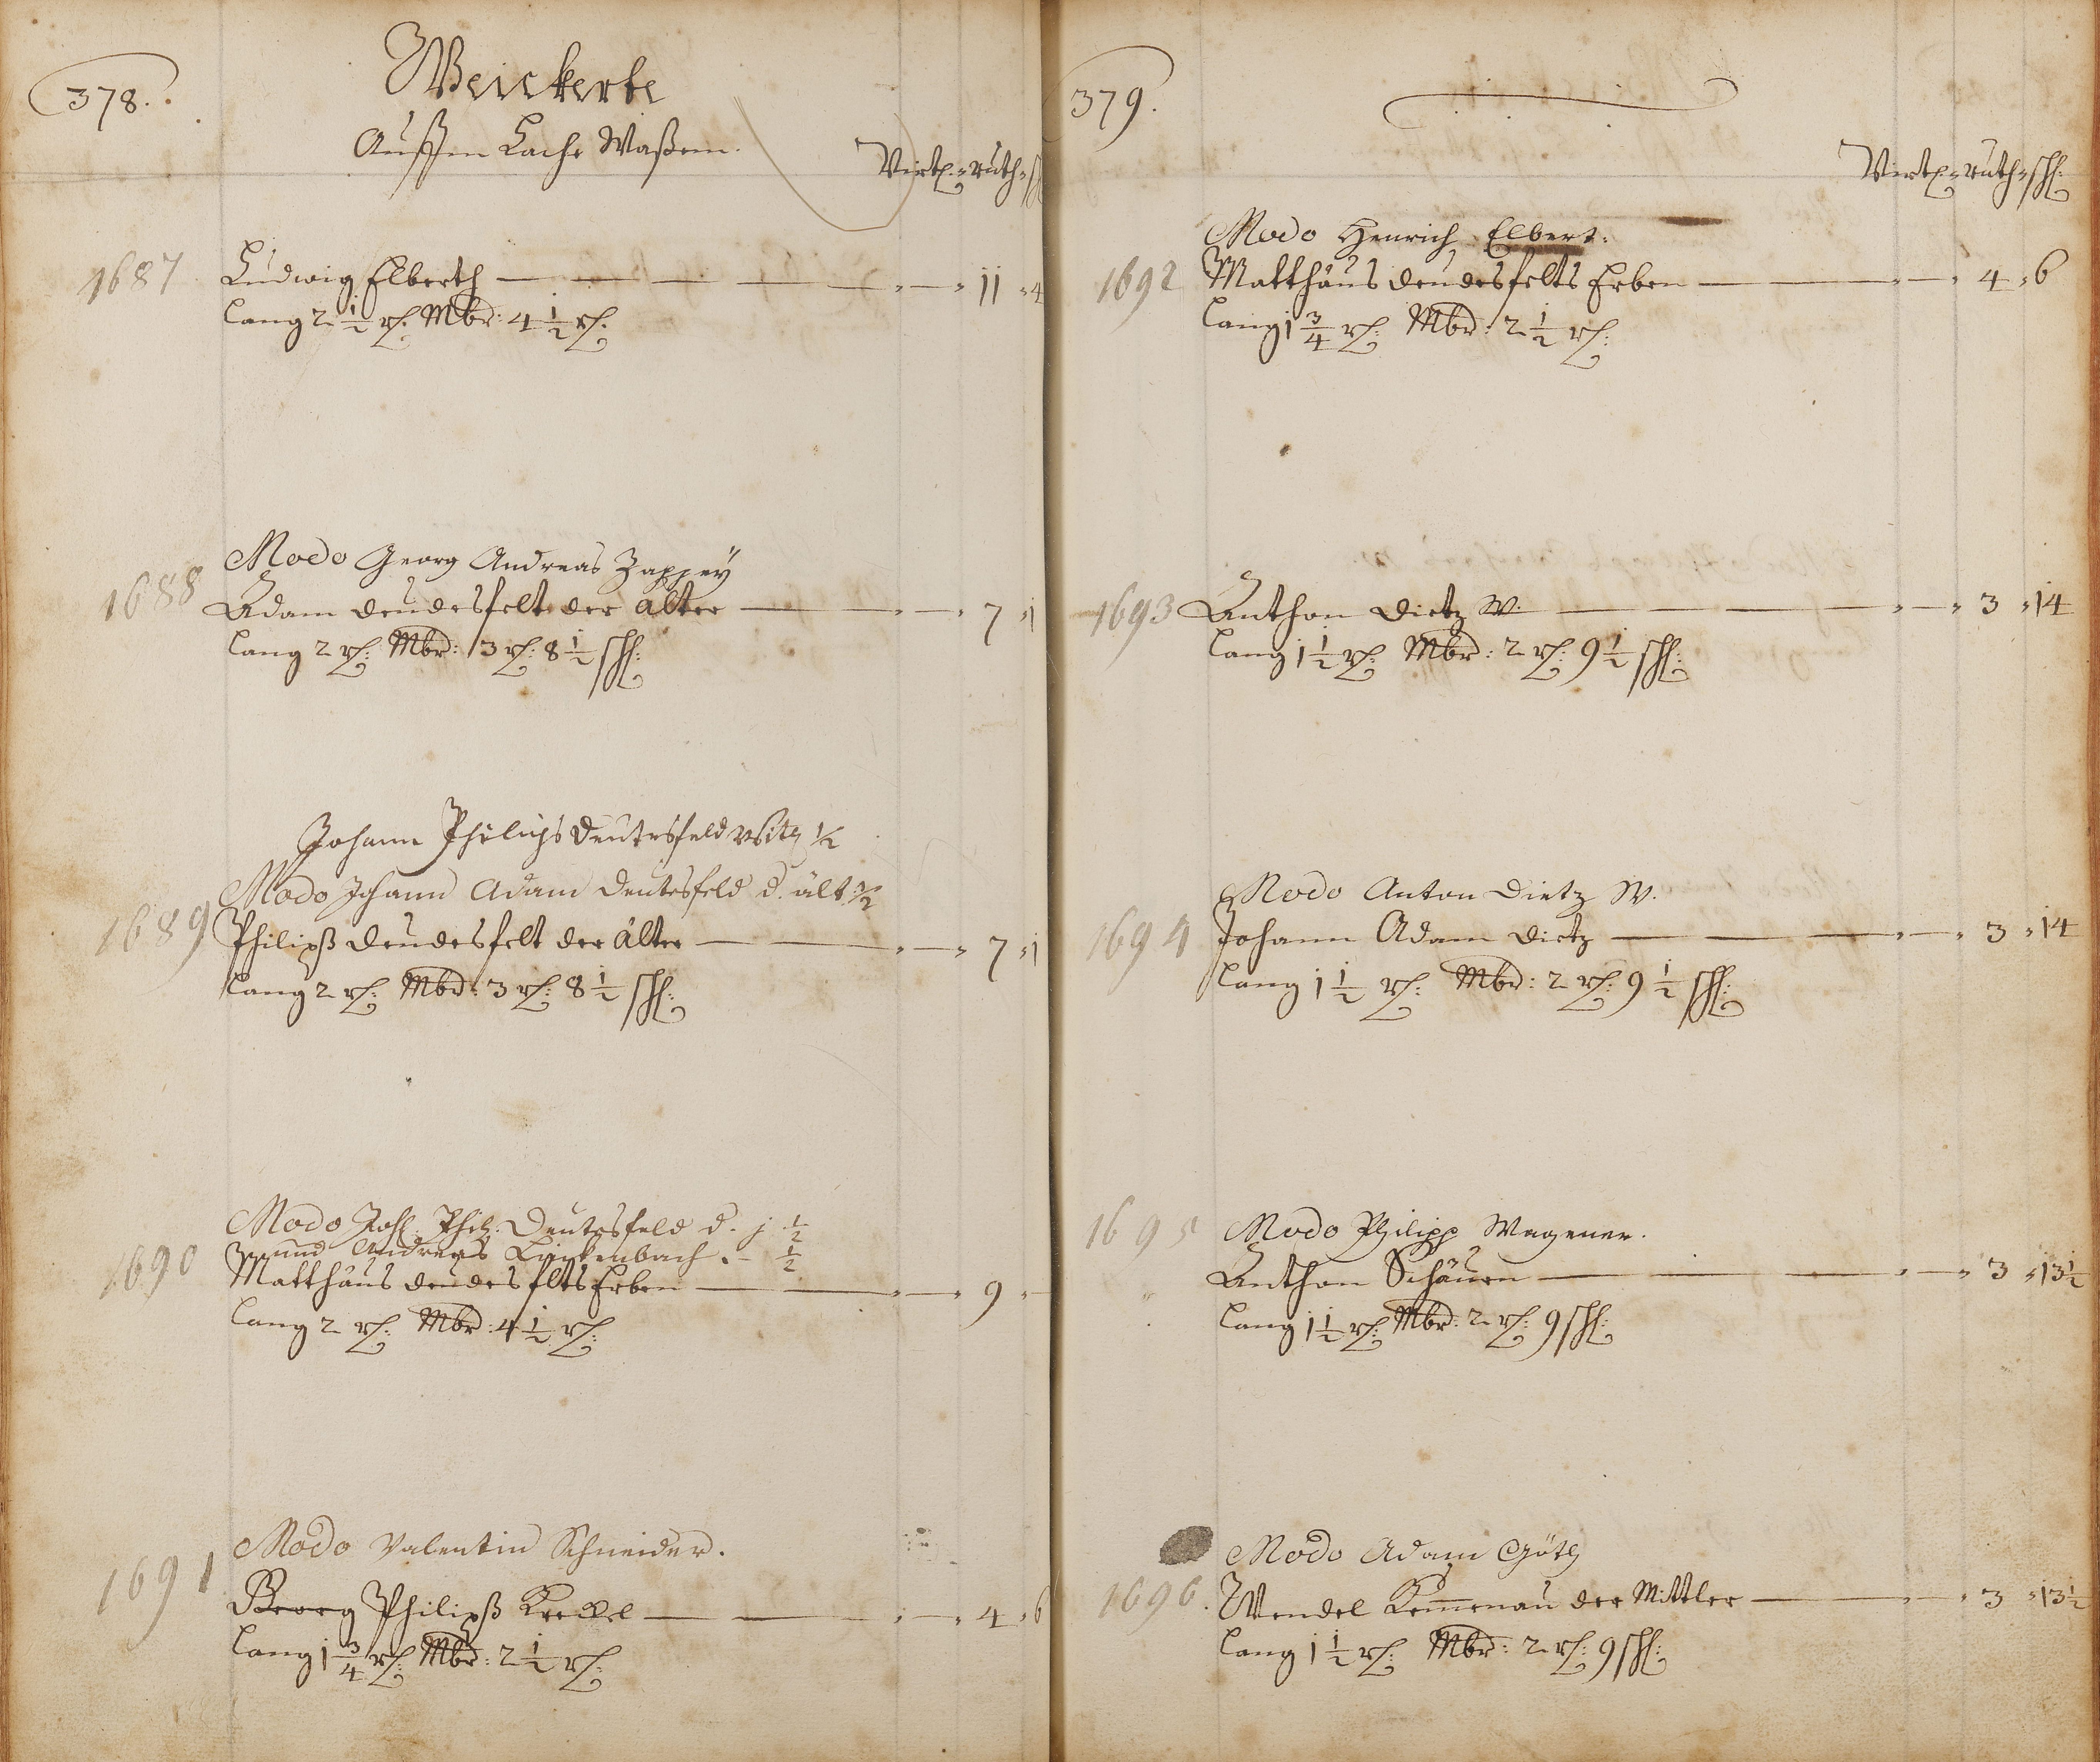 378.
Weickerte
Aussm Lache Waßem.
Virtel " ruth "
1687 Ludwig Elberth — " — " 11 " 4
Lang 2 1/2 rl: Mbr: 4 1/2 rl:
Modo Georg Andreas Zappey
1688 Adam deudesfelt der älter — " — " 7 " 1
Lang 2 rl: Mbr: 3 rl: 8 1/2 schl:
Johann Philips Deutesfeld 1/2
Modo Johann Adam Deutesfeld d. ält. 1/2
1689 Philipß deudesfelt der älter — " — " 7 " 1
Lang 2 rl: Mbr: 3 rl: 8 1/2 schl:
Modo Joh: Phil: Deutesfeld d. j 1/2
und Andreas Lauckenbach . – 1/2
1690 Matthäus deudesfelts Erben — " — " 9 "
Lang 2 rl: Mbr: 4 1/2 rl:
Modo Valentin Schneider.
1691 Georg Philipß Kreckel — " — " 4 " 6
Lang 1 3/4 rl: Mbr: 2 1/2 rl:
379.
Virtel " ruth " schl:
Modo Henrich Elbert:
1692 Matthäus deudesfelts Erben — " — " 4 " 6
Lang 1 3/4 rl: Mbr: 2 1/2 rl:
1693 Anthon Dietz W. — " — " 3 " 14
Lang 1 1/2 rl: Mbr: 2 rl: 9 1/2 schl:
Modo Anton Dietz W.
1694 Johann Adam Dietz — " — " 3 " 14
Lang 1 1/2 rl: Mbr: 2 rl: 9 1/2 schl:
1695 Modo Philipp Wagener.
Anthon Schäuen — " — " 3 " 13 1/2
Lang 1 1/2 rl: Mbr: 2 rl: 9 schl:
Modo Adam Göth
1696. Wendel Kemenau der Mittler — " — " 3 " 13 1/2
Lang 1 1/2 rl: Mbr: 2 rl: 9 schl: